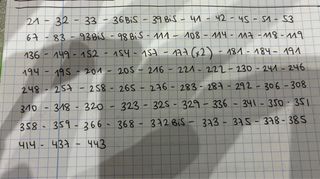 21 - 32 - 33 - 36Bis - 39Bis - 41 - 42 - 45 - 51 - 53
67 - 83 - 93Bis - 98Bis - 111 - 108 - 114 - 117 - 118 - 119
136 - 149 - 152 - 154 - 157 - 177 (x2) - 181 - 184 - 191
194 - 195 - 201 - 205 - 216 - 221 - 222 - 230 - 241 - 246
248 - 257 - 258 - 265 - 276 - 283 - 287 - 292 - 306 - 308
310 - 318 - 320 - 323 - 325 - 329 - 336 - 341 - 350 - 351
358 - 359 - 366 - 368 - 372Bis - 373 - 375 - 378 - 385
414 - 437 - 443